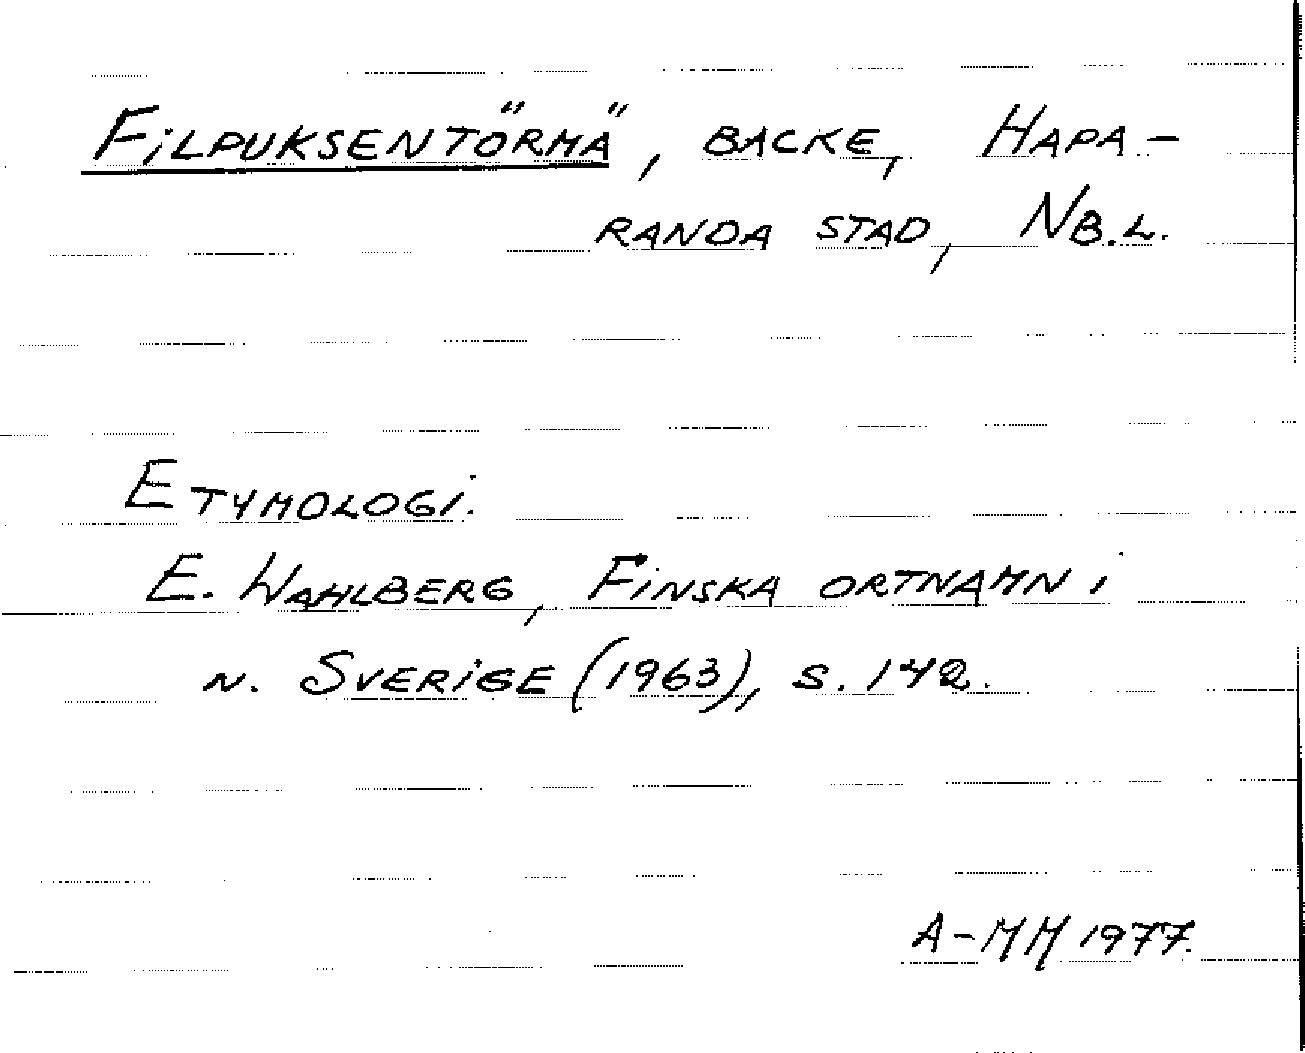 FILPUKSENTÖRMÄ, BACKE, HAPA-
RANDA STAD, NB.L.
ETYMOLOGI.
E. WAHLBERG, FINSKA ORTNAMN I
N. SVERIGE (1963), S. 142.
A-MM 1977.